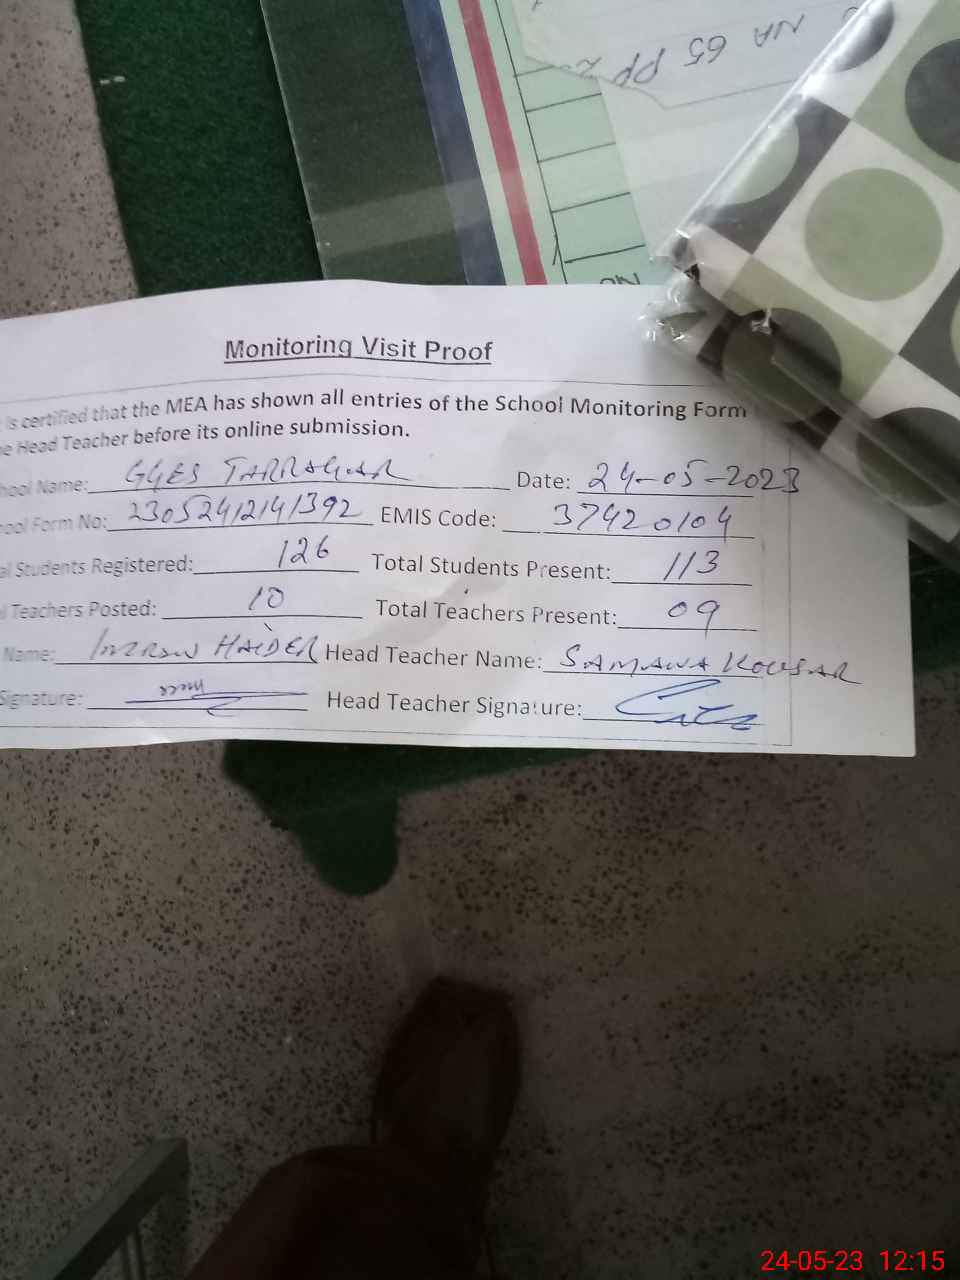 NA 65 PP
Monitoring Visit Proof
is certified that the MEA has shown all entries of the School Monitoring Form
e Head Teacher before its online submission.
hool Name: GGES TARRAGAR Date: 24-05-2023
ool Form No: 23052412141392 EMIS Code: 37420104
al Students Registered: 126 Total Students Present: 113
l Teachers Posted: 10 Total Teachers Present: 09
Name: IMRAN HAIDER Head Teacher Name: SAMAWA KOUSAR
Signature: Head Teacher Signature:
24-05-23 12:15